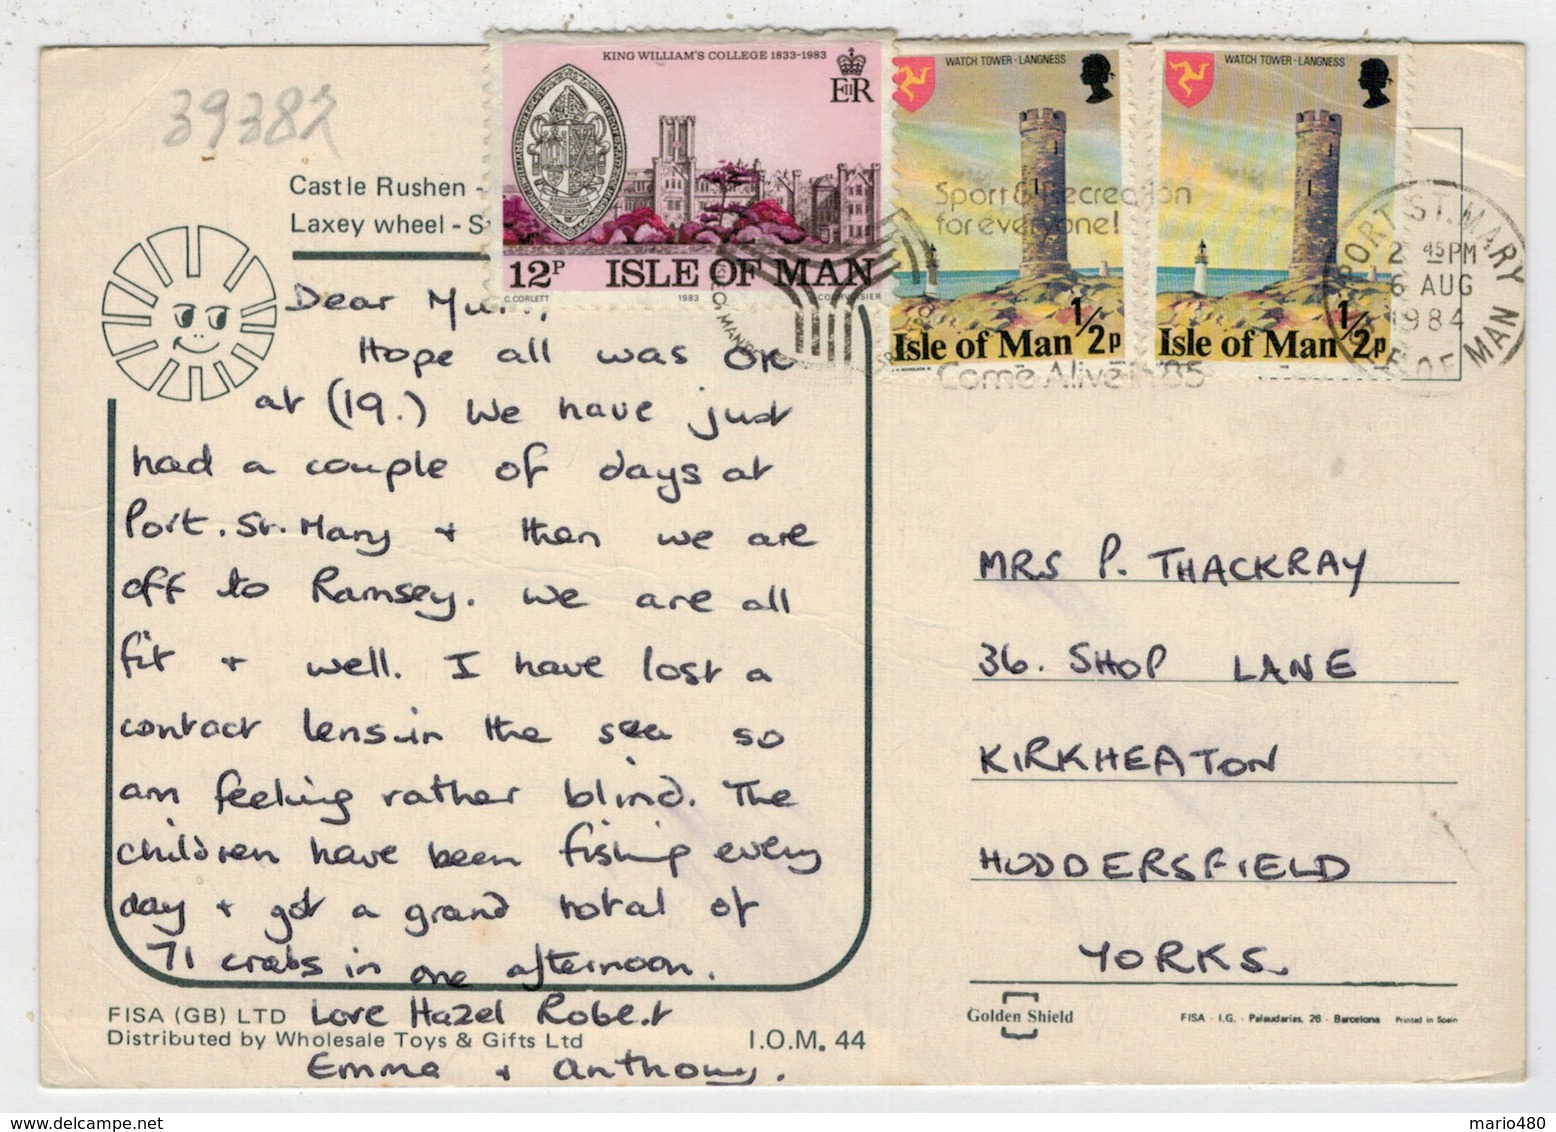 39382
KING WILLIAM'S COLLEGE 1833-1983
EIIR
12P ISLE OF MAN
C. CORLETT 1983 COURVOISIER
WATCH TOWER - LANGNESS
1/2p
Isle of Man
WATCH TOWER - LANGNESS
1/2p
Isle of Man
Sport & Recreation
for everyone!
Come Alive in '85
PORT ST. MARY
2 45PM
6 AUG
1984
ISLE OF MAN
Castle Rushen -
Laxey wheel - S
Dear Mum,
Hope all was OK
at (19.) We have just
had a couple of days at
Port. St. Mary + then we are
off to Ramsey. We are all
fit + well. I have lost a
contact lens in the sea so
am feeling rather blind. The
children have been fishing every
day + got a grand total of
71 crabs in one afternoon.
Love Hazel Robert
Emma + Anthony.
FISA (GB) LTD
Distributed by Wholesale Toys & Gifts Ltd I.O.M. 44
MRS P. THACKRAY
36. SHOP LANE
KIRKHEATON
HUDDERSFIELD
YORKS.
Golden Shield
FISA - I.G. - Palaudarias, 26 - Barcelona Printed in Spain
mario480